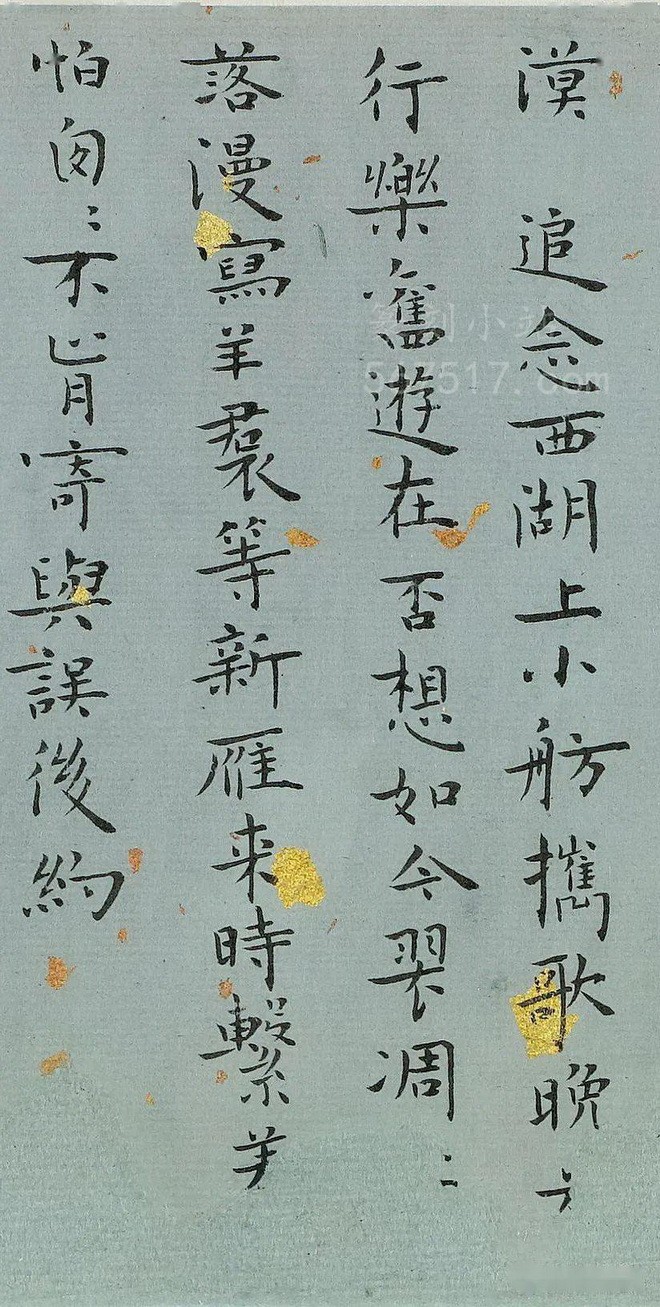 漠 追念西湖上小舫攜歌晚
行樂舊遊在否想如今翠凋
落漫寫羊裠等新雁来時繫
怕匆〻不肯寄與誤後約